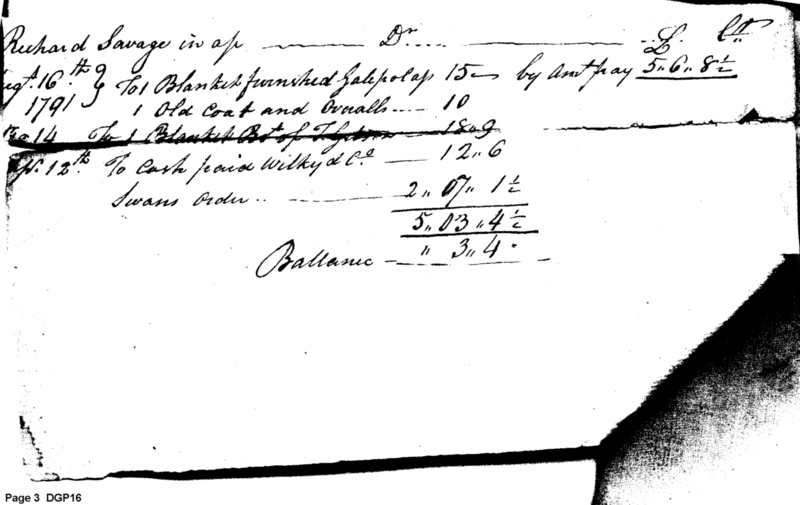 Richard Savage in ap Dr. £ Ct
Sept. 16th } To 1 Blanket furnished Galepolas 15 by Amt pay 5,, 6,, 8½
1791 } 1 Old Coat and Overalls 10
14 To 1 Blanket Bot of 18,, 9
12th To Cash paid Wilky & Co 12,, 6
Swans Order.. 2,, 07,, 1½
5,, 03,, 4½
Ballance ,, 3,, 4
Page 3 DGP16